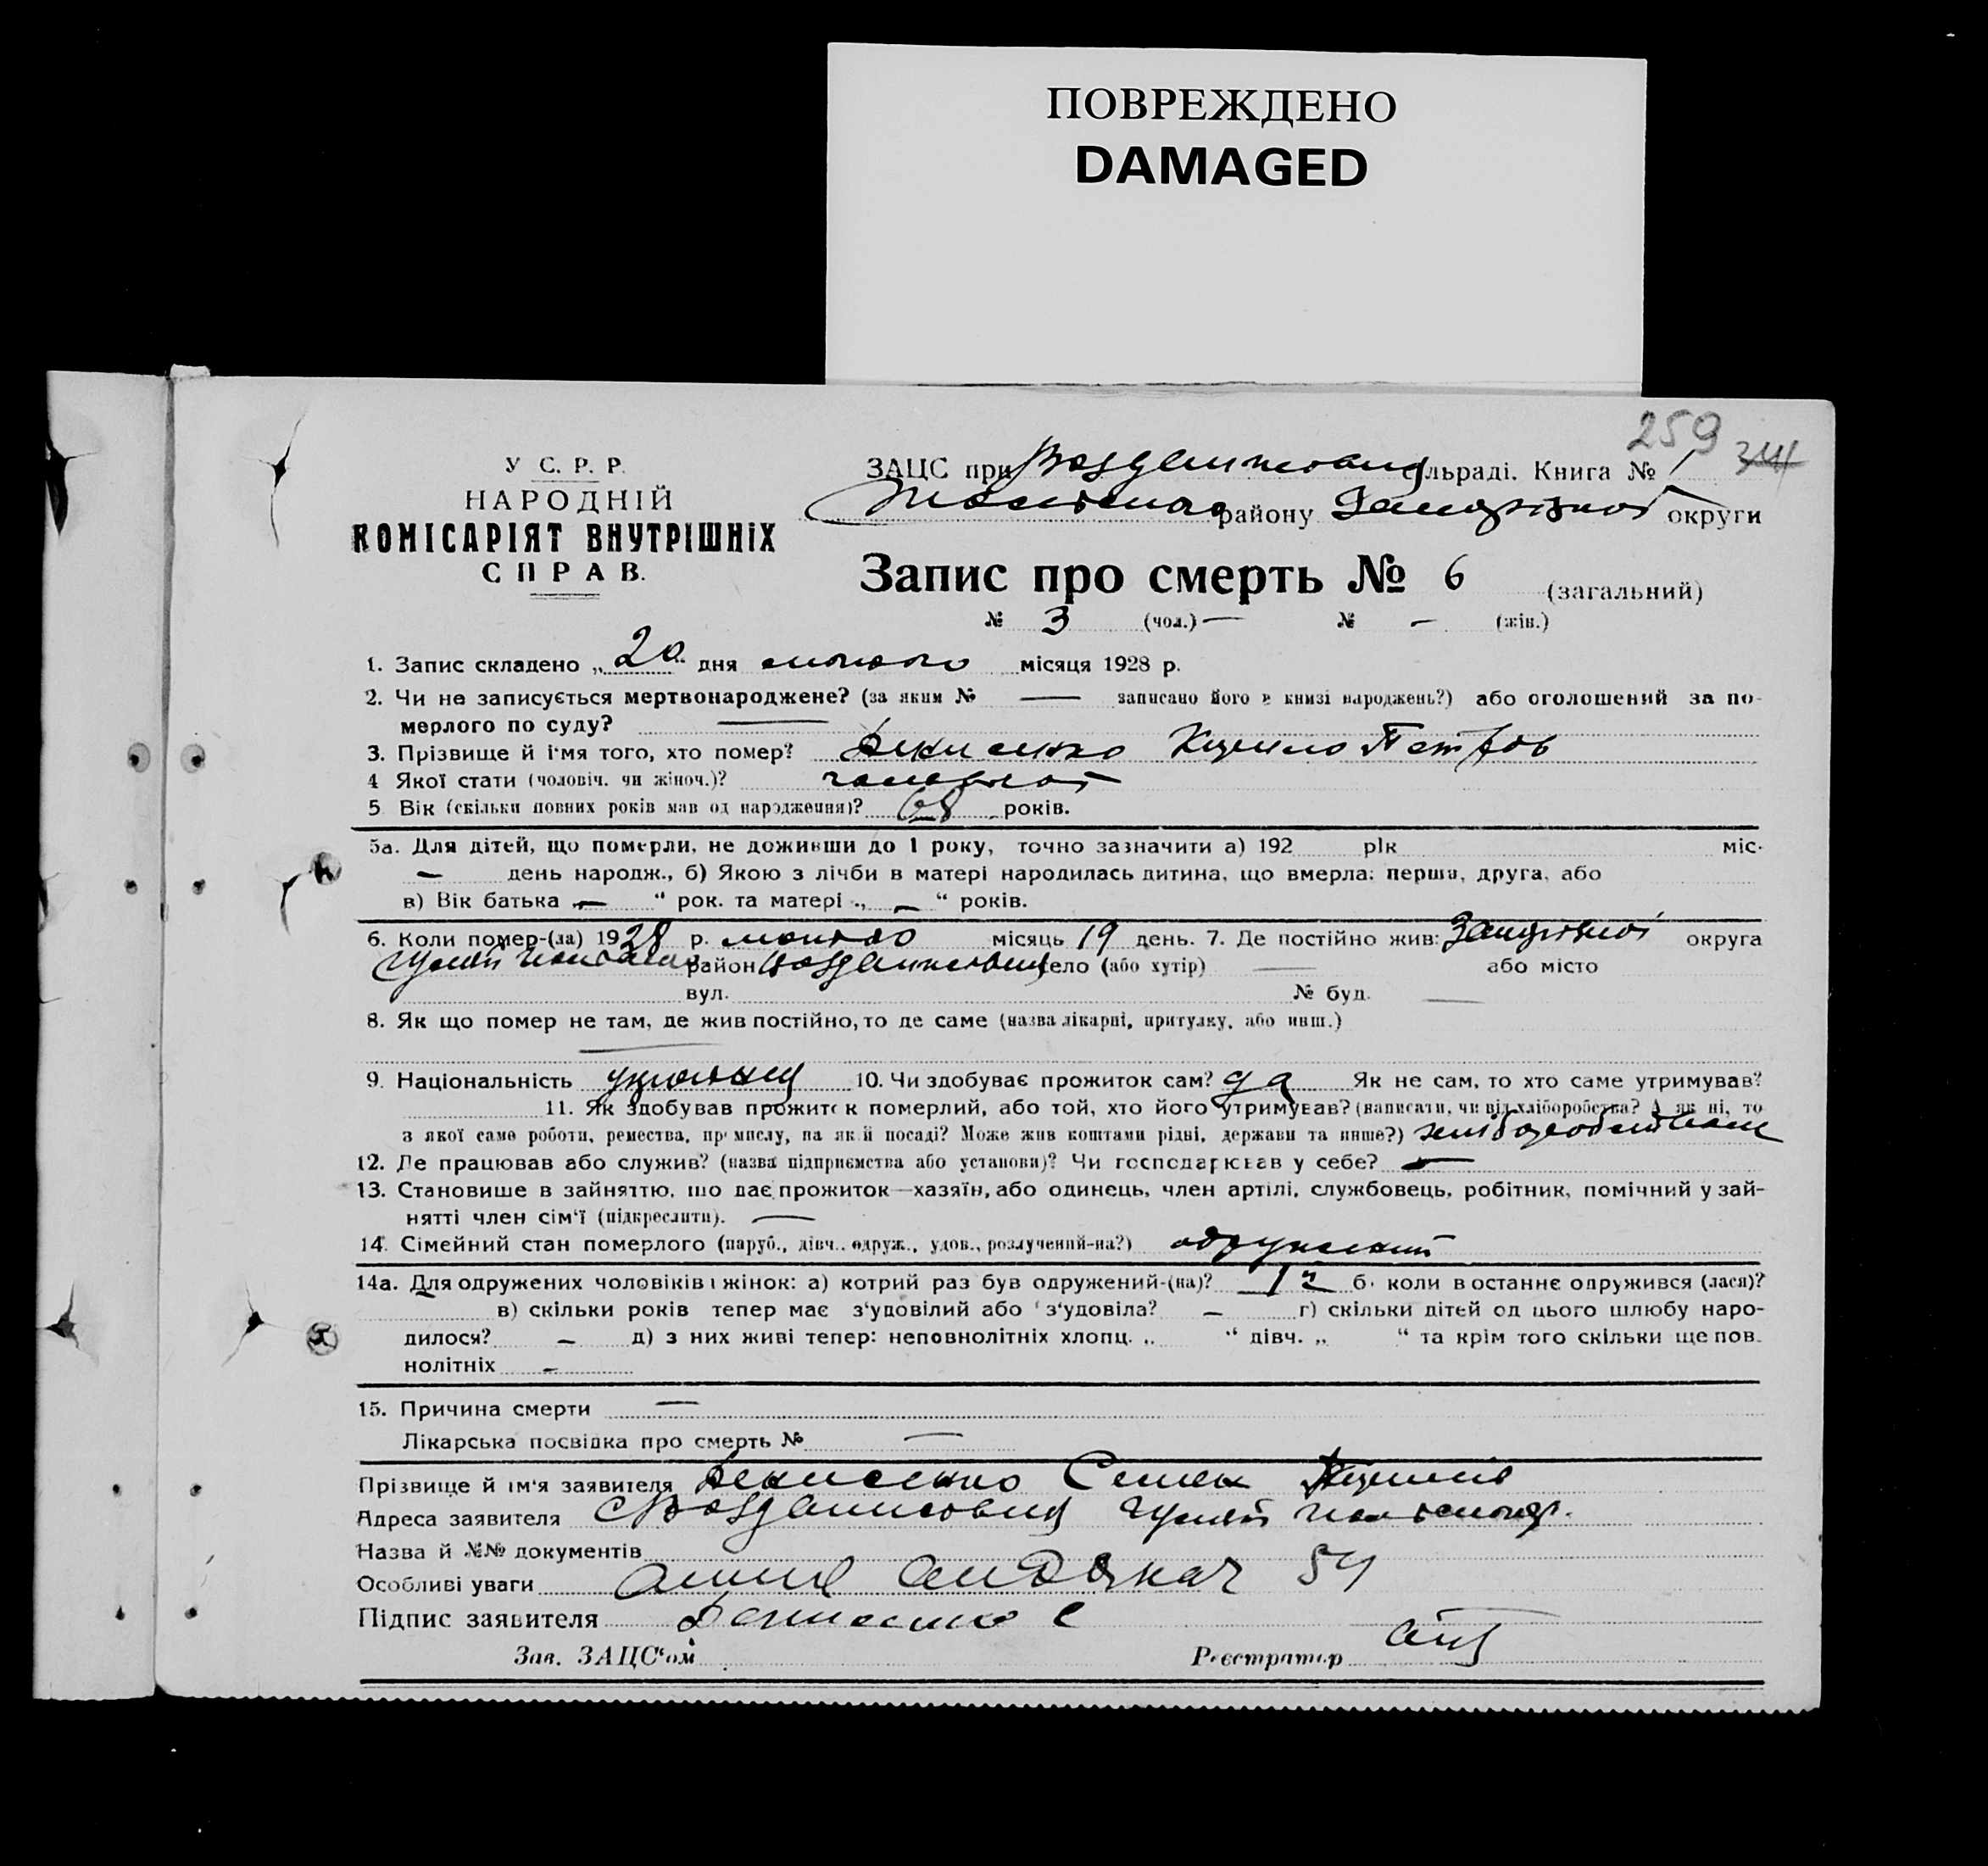 ПОВРЕЖДЕНО
DAMAGED
259
У С. Р. Р.
НАРОДНІЙ
КОМІСАРІЯТ ВНУТРІШНІХ
СПРАВ.
ЗАЦС при сільраді. Книга № 1
району Запорізької округи
Запис про смерть № 6 (загальний)
№ 3 (чол.) — № — (жін.)
1. Запис складено „20“ дня лютого місяця 1928 р.
2. Чи не записується мертвонароджене? (за яким № — записано його в книзі народжень?) або оголошений за по-
мерлого по суду? —
3. Прізвище й і'мя того, хто помер? Денисенко Кирило Петров
4 Якої стати (чоловіч. чи жіноч.)?
5 Вік (скільки повних років мав од народження)? 68 років.
5а. Для дітей, що померли, не доживши до 1 року, точно зазначити а) 192 рік міс.
— день народж., б) Якою з лічби в матері народилась дитина, що вмерла: перша, друга, або
в) Вік батька — “ рок. та матері „ — “ років.
6. Коли помер-(ла) 1928 р. лютого місяць 19 день. 7. Де постійно жив: Запорізької округа
район село (або хутір) — або місто
вул. № буд. —
8. Як що помер не там, де жив постійно, то де саме (назва лікарні, притулку, або инш.)
—
9. Національність українец 10. Чи здобуває прожиток сам? да Як не сам, то хто саме утримував?
11. Як здобував прожиток померлий, або той, хто його утримував? (написати, чи від хліборобства? А як ні, то
з якої саме роботи, ремества, промислу, на якій посаді? Може жив коштами рідні, держави та инше?) хліборобством
12. Де працював або служив? (назва підприємства або установи)? Чи господарював у себе? —
13. Становище в зайняттю, що дає прожиток—хазяїн, або одинець, член артілі, службовець, робітник, помічний у зай-
нятті член сім'ї (підкреслити). —
14. Сімейний стан померлого (паруб., дівч., одруж., удов., розлучений-на?) одружений
14а. Для одружених чоловіків і жінок: а) котрий раз був одружений-(на)? 1й б. коли в останнє одружився (лася)?
в) скільки років тепер має з'удовілий або з'удовіла? — г) скільки дітей од цього шлюбу наро-
дилося? — д) з них живі тепер: неповнолітніх хлопц. „ “ дівч. „ “ та крім того скільки ще пов-
нолітніх —
15. Причина смерти —
Лікарська посвідка про смерть № —
Прізвище й ім'я заявителя Денисенко Семен
Адреса заявителя
Назва й №№ документів
Особливі уваги
Підпис заявителя Денисенко С
Зав. ЗАЦС'ом Реєстратор